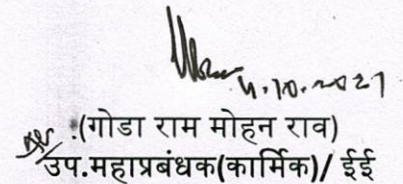 4.10.2021
(गोडा राम मोहन राव)
उप.महाप्रबंधक(कार्मिक)/ ईई